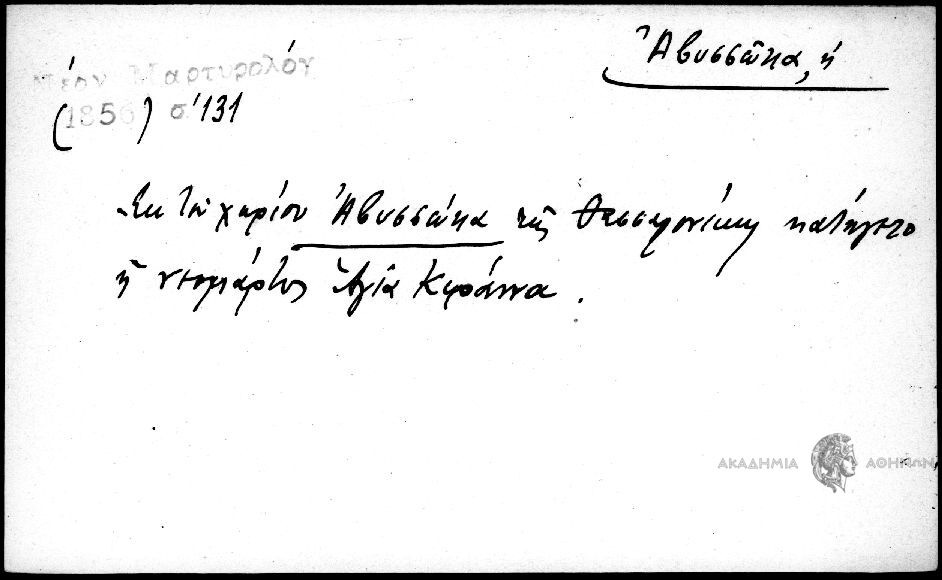 Ἀβυσσῶκα, ἡ
Νέον Μαρτυρολόγ
(1856) σ. 131
Ἐκ τοῦ χωρίου Ἀβυσσῶκα τῆς Θεσσαλονίκης κατήγετο
ἡ νεομάρτυς Ἁγία Κυράννα.
ΑΚΑΔΗΜΙΑ ΑΘΗΝΩΝ